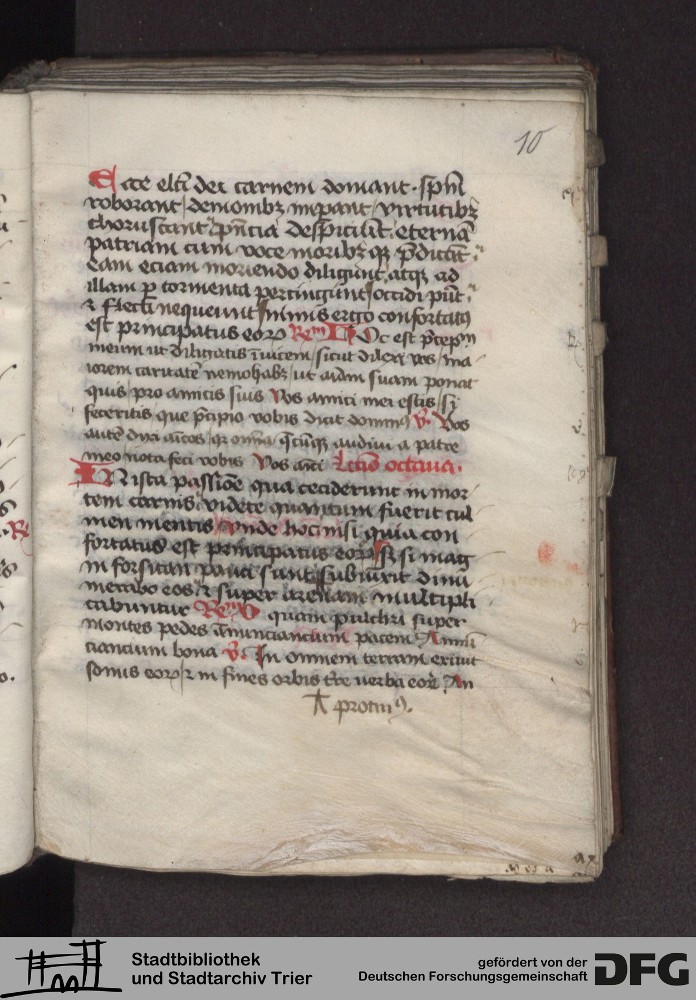 10
Ecce electi dei carnem domant. spm̄
roborant / demonibꝫ impant / virtutibꝫ
choruscant / pn̄cia despiciūt, eternā
patriam cum voce moribꝫ qꝫ p̄dicāt.
eam eciam moriendo diligunt, atqꝫ ad
illam p tormenta pertingunt / occidi pn̄t.
⁊ flecti nequeunt / nimis ergo confortatꝰ
est principatus eoꝝ Rem̄ Hoc est p̄ceptū
meum ut diligatis īuicem / sicut dilexi vos / ma
iorem caritatē nemo habꝫ / ut aīam suam ponat
quis / pro amicis suis Vos amici mei estis / si
feceritis que p̄cipio vobis dicit dominꝰ v̄. Vos
autē dixi aīcos / qꝛ omīa q̄cūqꝫ audiui a patre
meo nota feci vobis Vos aīci Lectio octaua.
IN ista passiōe qua ceciderunt in mor
tem carnis videte quantum fuerit cul
men mentis Vnde hoc nisi quia con
fortatus est principatus eoꝝ Sꝫ si mag
ni forsitan pauci sunt Subiūxit dinu
merabo eos / ⁊ super arenam multipli
cabuntur Rem̄ O quam pulchri super
montes pedes ānunciancium pacem Annū
ciancium bona v̄. In omnem terram exiuit
sonus eoꝝ / ⁊ in fines orbis tr̄e verba eoꝝ An
protinꝰ.
Stadtbibliothek
und Stadtarchiv Trier
gefördert von der
Deutschen Forschungsgemeinschaft
DFG